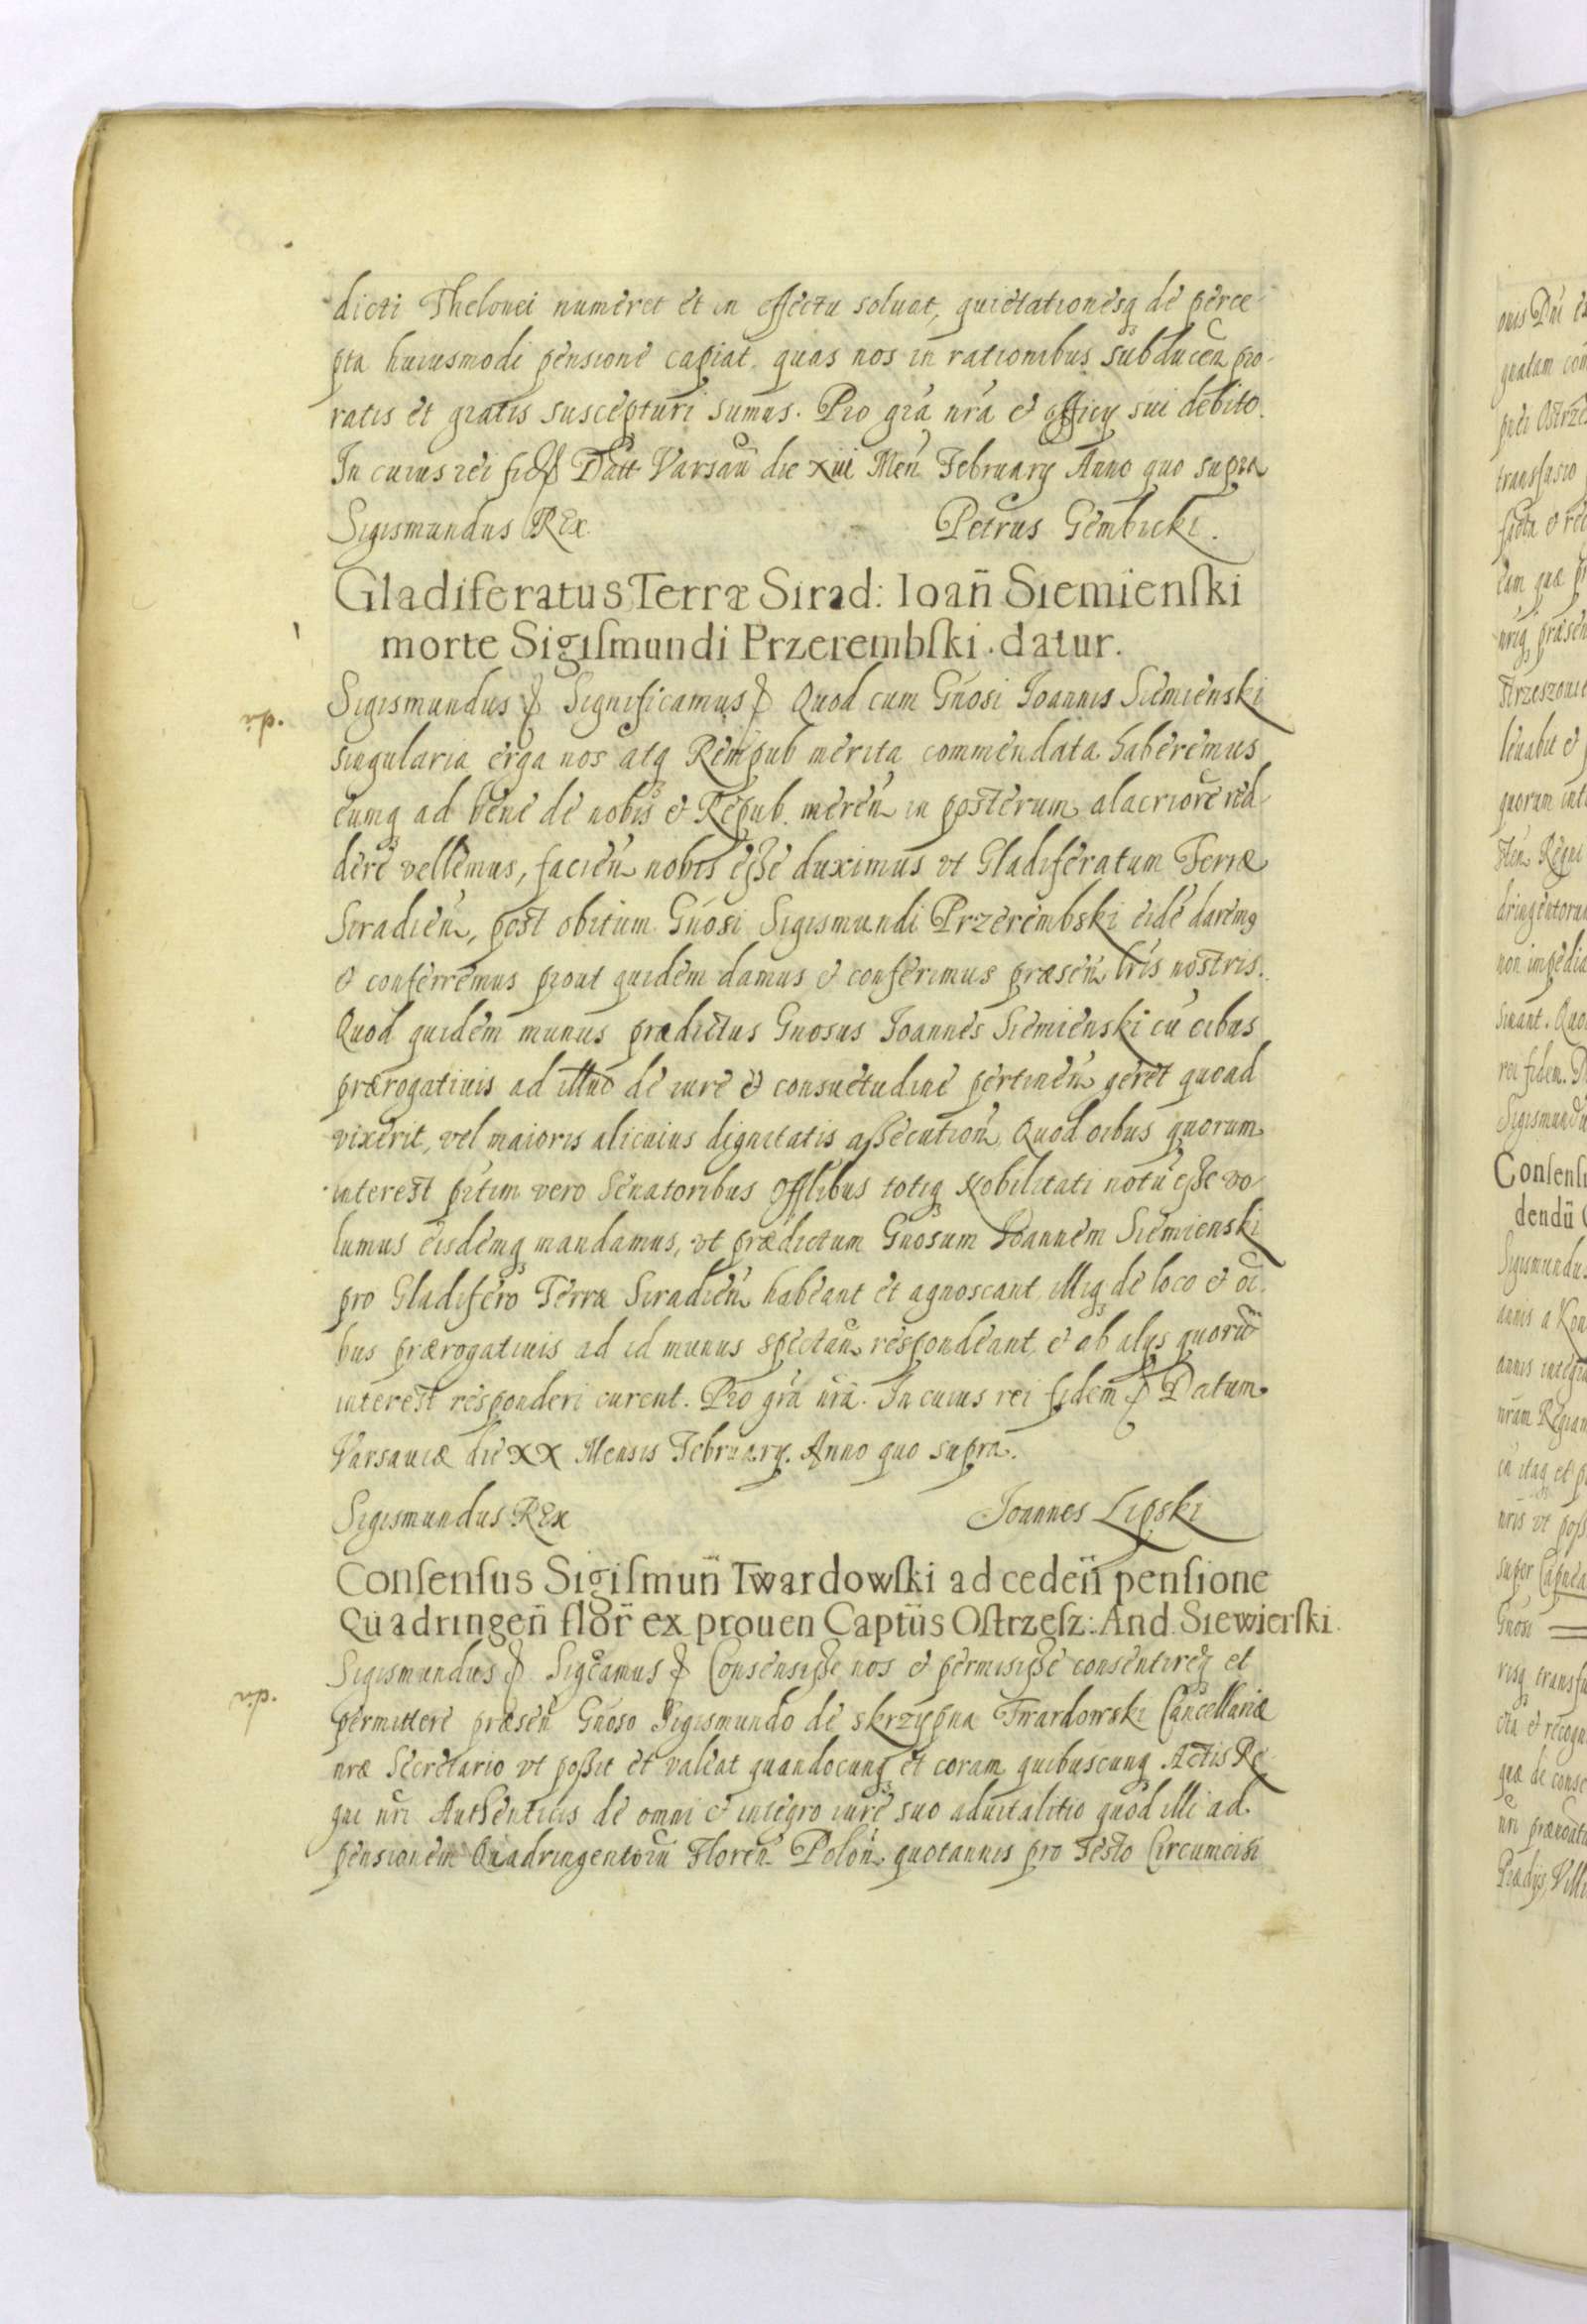 dicti Thelonei numeret et in effectu soluat, quietationesq de perce-
pta huiusmodi pensione capiat, quas nos in rationibus subducen pro
ratis et gratis suscepturi sumus. Pro gra nra & officy sui debito.
In cuius rei fid Datt Varsau die xiii Men February Anno quo supra
Sigismundus REx. Petrus Gembicki.
Gladiferatus Terræ Sirad: Ioañ Siemienſki
morte Sigiſmundi Przerembſki . datur.
Sigismundus Significamus Quod cum Gnosi Joannis Siemienski
singularia erga nos atq Rempub merita commendata haberemus
eumq ad bene de nobis & Repub. meren in posterum alacriore red-
dere vellemus, facien nobis esse duximus vt Gladiferatum Terræ
Siradien, post obitum Gnosi Sigismundi Przerembski eide darem9
& conferremus prout quidem damus & conferimus præsen lris nostris.
Quod quidem munus prædictus Gnosus Joannes Siemienski cu oibus
prærogatiuis ad illud de iure & consuetudine pertinen geret quoad
vixerit, vel maioris alicuius dignitatis assecution. Quod oibus quorum
interest ptim vero Senatoribus Offlibus totiq Nobilitati notu esse vo
lumus eisdemq mandamus, vt prædictum Gnosum Joannem Siemienski
pro Gladifero Terræ Siradien habeant et agnoscant illiq de loco & oi
bus prærogatiuis ad id munus spectan respondeant, & ab alys quoru
interest responderi curent. Pro gra nra. In cuius rei fidem Datum
Varsauiæ die XX Mensis February. Anno quo supra.
Sigismundus REx Joannes Lipski
Conſenſus Sigiſmun̈ Twardowſki ad ceden̈ penſione
Quadringen̈ flor̈ ex prouen Captüs Oſtrzeſz: And Siewierſki.
Sigismundus Sigcamus Consensisse nos & permisisse consentireq et
permittere præsen Gnoso Sigismundo de skrzypna Twardowski Cancellariæ
nræ Secretario vt possit et valeat quandocunq et coram quibuscunq Actis Re
gni nri Authenticis de omni & integro iure suo aduitalitio quod illi ad
pensionem Quadringentoru Floren Polon quotannis pro Festo Circumcisi